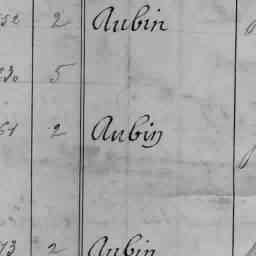 52 2 Aubin
30 5
51 2 Aubin
73 2 Aubin